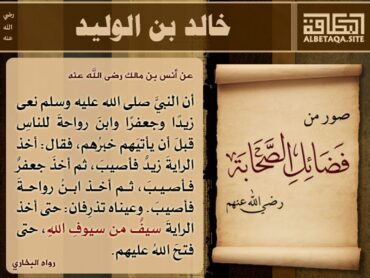 خالد بن الوليد
رضي
الله
عنه
البطاقة
ALBETAQA.SITE
عن أنس بن مالك رضى الله عنه
أن النبيَّ صلى الله عليه وسلم نعى
زيدًا وجعفرًا وابنَ رواحةَ للناسِ
قبلَ أن يأتيهم خبرُهم، فقال: أخذ
الرايةَ زيدٌ فأصيبَ، ثم أخذَ جعفرٌ
فأصيبَ، ثم أخذ ابنُ رواحة
فأصيبَ. وعيناه تذرِفان: حتى أخذ
الرايةَ سيفٌ من سيوفِ اللهِ، حتى
فتحَ اللهُ عليهم.
رواه البخاري
صور من
فضائل الصحابة
رضي الله عنهم